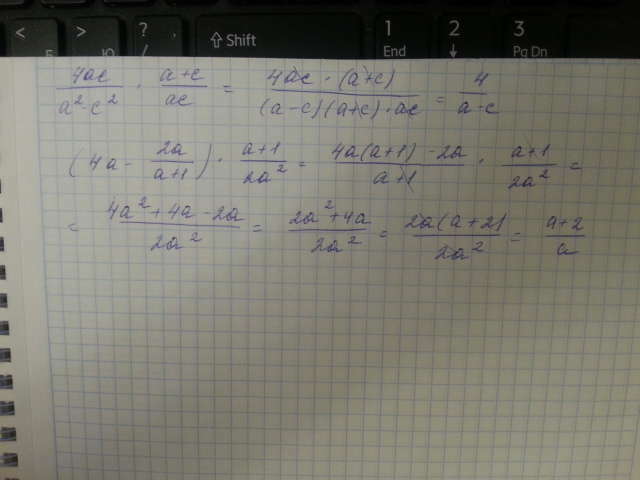 < > ? , ⇧ Shift 1 2 3
5 10 / End ↓ Pg Dn
4ac/(a²-c²) · (a+c)/ac = 4ac·(a+c)/((a-c)(a+c)·ac) = 4/(a-c)
(4a - 2a/(a+1)) · (a+1)/2a² = (4a(a+1)-2a)/(a+1) · (a+1)/2a² =
= (4a²+4a-2a)/2a² = (2a²+4a)/2a² = 2a(a+2)/2a² = (a+2)/a